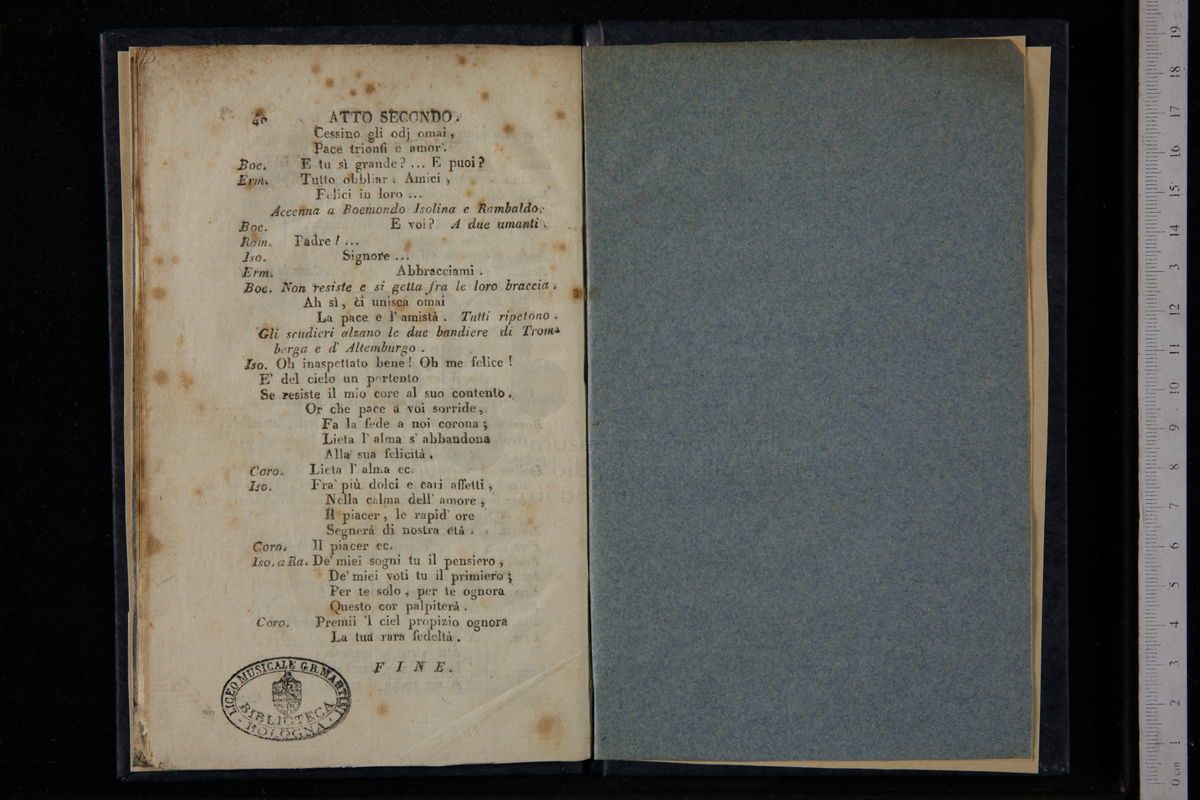 40 ATTO SECONDO.
Cessino gli odj omai,
Pace trionfi e amor.
Boe. E tu sì grande? ... E puoi?
Erm. Tutto obbliar. Amici,
Felici in loro ...
Accenna a Boemondo Isolina e Rambaldo.
Boe. E voi? A due amanti.
Ram. Padre! ...
Iso. Signore ...
Erm. Abbracciami.
Boe. Non resiste e si getta fra le loro braccia.
Ah sì, ci unisca omai
La pace e l' amistà. Tutti ripetono.
Gli scudieri alzano le due bandiere di Trom-
berga e d' Altemburgo.
Iso. Oh inaspettato bene! Oh me felice!
E' del cielo un portento
Se resiste il mio core al suo contento.
Or che pace a voi sorride,
Fa la fede a noi corona;
Lieta l' alma s' abbandona
Alla sua felicità.
Coro. Lieta l' alma ec.
Iso. Fra' più dolci e cari affetti,
Nella calma dell' amore,
Il piacer, le rapid' ore
Segnerà di nostra età.
Coro. Il piacer ec.
Iso. a Ra. De' miei sogni tu il pensiero,
De' miei voti tu il primiero;
Per te solo, per te ognora
Questo cor palpiterà.
Coro. Premii 'l ciel propizio ognora
La tua rara fedeltà.
FINE.
LICEO MUSICALE G.B. MARTINI
BIBLIOTECA
BOLOGNA
0 cm 1 2 3 4 5 6 7 8 9 10 11 12 13 14 15 16 17 18 19